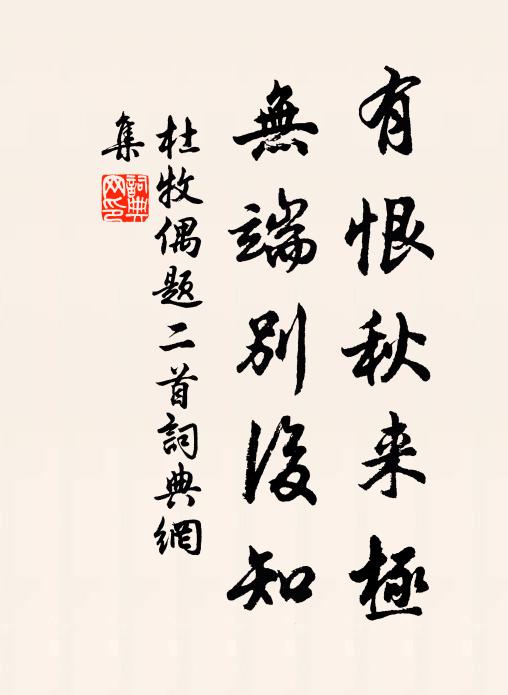 有恨秋来極
無端別後知
杜牧偶題二首詞典網
集
詞典網印